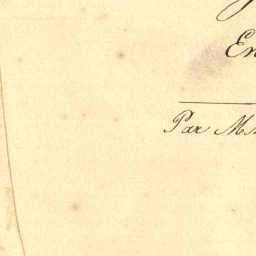 En
Par M